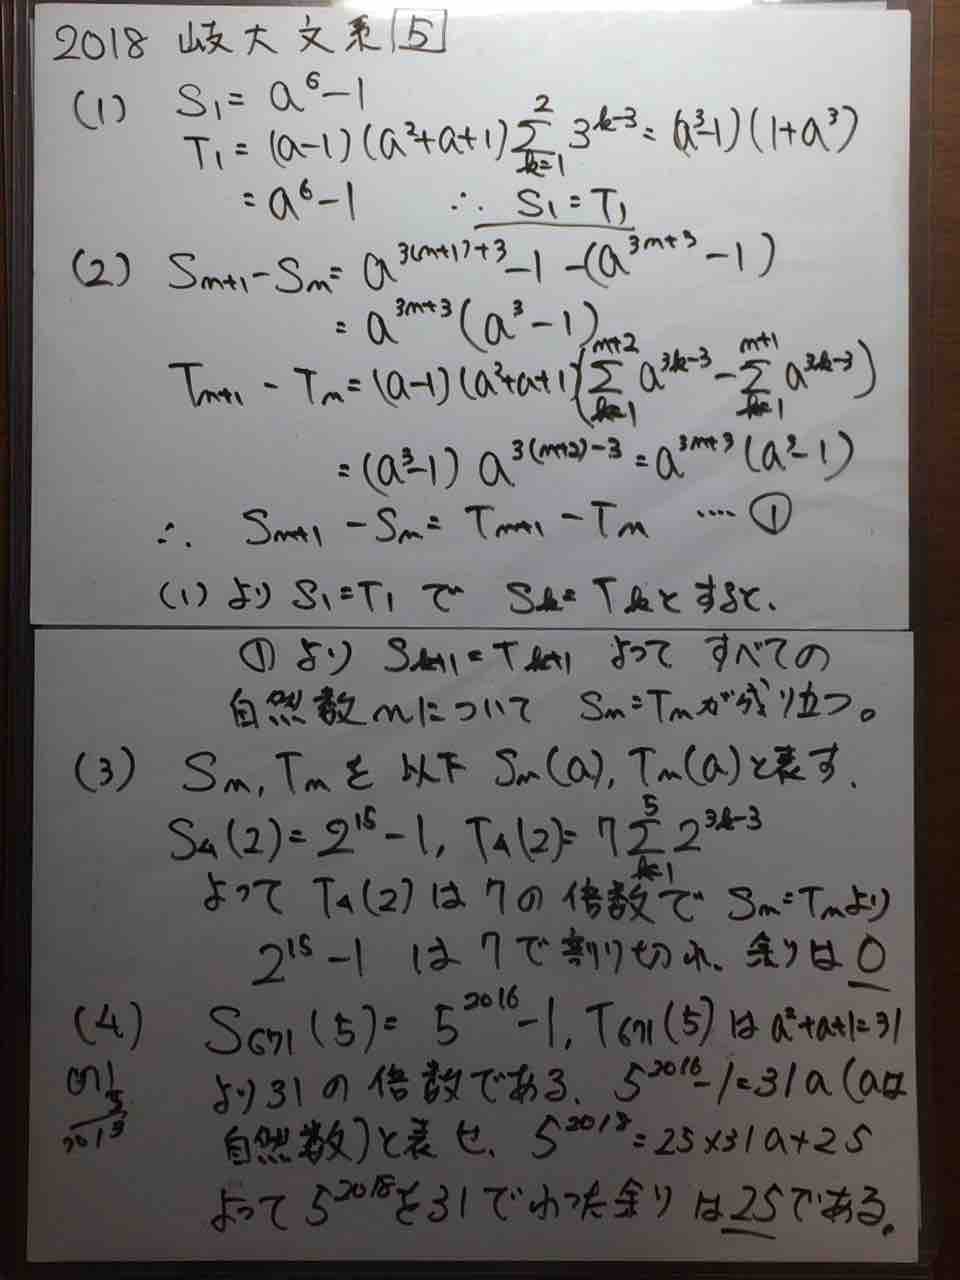 2018 岐大文系 5
(1) S₁ = a⁶-1
T₁ = (a-1)(a²+a+1)∑_{k=1}^{2} 3^{k-3} = (a³-1)(1+a³)
= a⁶-1 ∴ S₁=T₁
(2) Sn+1-Sn = a^{3(n+1)+3}-1-(a^{3n+3}-1)
= a^{3n+3}(a³-1)
Tn+1-Tn = (a-1)(a²+a+1)(∑_{k=1}^{n+2} a^{3k-3} - ∑_{k=1}^{n+1} a^{3k-3})
= (a³-1) a^{3(n+2)-3} = a^{3n+3}(a³-1)
∴ Sn+1-Sn = Tn+1-Tn ‥‥ ①
(1)より S₁=T₁ で Sk=Tkとすると、
①より Sk+1=Tk+1 よって すべての
自然数nについて Sn=Tnが成り立つ。
(3) Sn, Tnを以下 Sn(a), Tn(a)と表す.
S₄(2)=2^{15}-1, T₄(2)=7∑_{k=1}^{5} 2^{3k-3}
よって T₄(2)は7の倍数で Sn=Tnより
2^{15}-1 は7で割り切れ、余りは0
(4) S₆₇₁(5)= 5^{2016}-1, T₆₇₁(5)は a²+a+1=31
より31の倍数である、5^{2016}-1=31a (aは
自然数)と表せ、5^{2018}=25×31a+25
よって5^{2018}を31でわった余りは25である。
671
3
2013